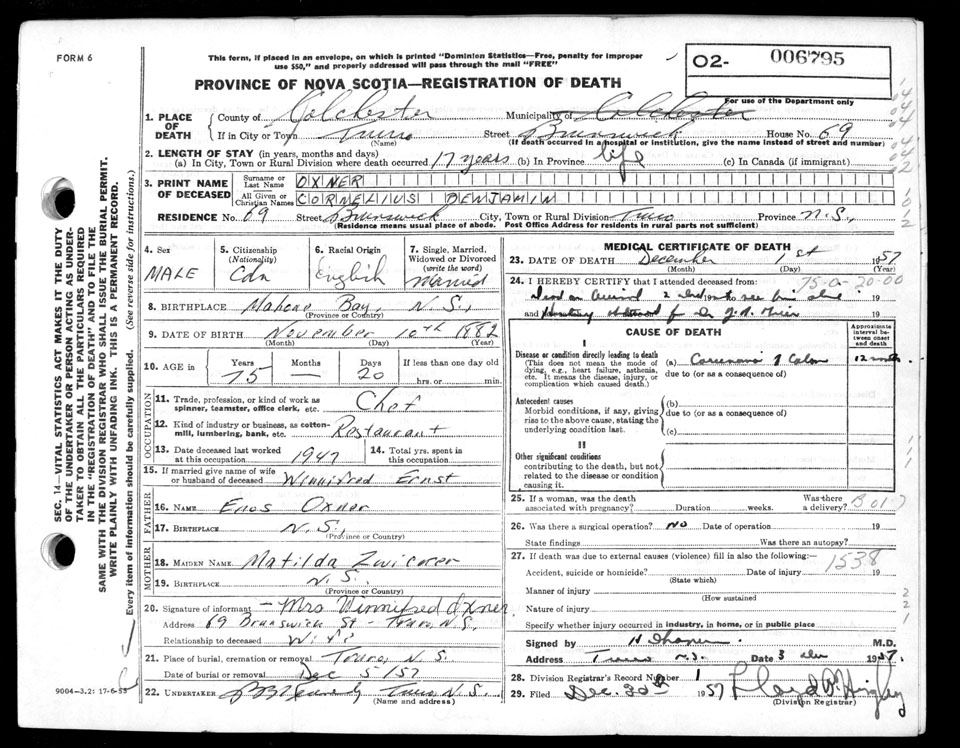 FORM 6
This form, if placed in an envelope, on which is printed "Dominion Statistics—Free, penalty for improper
use $50," and properly addressed will pass through the mail "FREE"
PROVINCE OF NOVA SCOTIA—REGISTRATION OF DEATH
02- 006795
For use of the Department only
1. PLACE OF DEATH
County of Colchester Municipality of Colchester
If in City or Town Truro Street Brunswick House No. 69
(Name) (If death occurred in a hospital or institution, give the name instead of street and number)
2. LENGTH OF STAY (in years, months and days)
(a) In City, Town or Rural Division where death occurred 17 years (b) In Province life (c) In Canada (if immigrant)
3. PRINT NAME OF DECEASED
Surname or Last Name OXNER
All Given or Christian Names CORNELIUS BENJAMIN
RESIDENCE No. 69 Street Brunswick City, Town or Rural Division Truro Province N.S.,
(Residence means usual place of abode. Post Office Address for residents in rural parts not sufficient)
4. Sex
MALE
5. Citizenship (Nationality)
Cdn
6. Racial Origin
English
7. Single, Married, Widowed or Divorced (write the word)
Married
8. BIRTHPLACE Mahone Bay, N.S.,
(Province or Country)
9. DATE OF BIRTH November 10th 1882
(Month) (Day) (Year)
10. AGE in
Years Months Days If less than one day old
75 — 20 hrs. or min.
OCCUPATION
11. Trade, profession, or kind of work as
spinner, teamster, office clerk, etc. Chef
12. Kind of industry or business, as cotton-
mill, lumbering, bank, etc. Restaurant
13. Date deceased last worked
at this occupation 1947
14. Total yrs. spent in
this occupation
15. If married give name of wife
or husband of deceased Winnifred Ernst
FATHER
16. NAME Enos Oxner
17. BIRTHPLACE N.S.,
(Province or Country)
MOTHER
18. MAIDEN NAME Matilda Zwicorer
19. BIRTHPLACE N.S.
(Province or Country)
20. Signature of informant — Mrs Winnifred Oxner
Address 69 Brunswick St - Truro, N.S.,
Relationship to deceased Wife
21. Place of burial, cremation or removal Truro, N.S.
Date of burial or removal Dec 5/57
22. UNDERTAKER Truro N.S.
(Name and address)
MEDICAL CERTIFICATE OF DEATH
23. DATE OF DEATH December 1st 1957
(Month) (Day) (Year)
24. I HEREBY CERTIFY that I attended deceased from:
75-0-20-00
19
and 19
CAUSE OF DEATH
Approximate interval between onset and death
I
Disease or condition directly leading to death
(This does not mean the mode of
dying, e.g., heart failure, asthenia,
etc. It means the disease, injury, or
complication which caused death.)
(a) Carcinoma of Colon 12 months
due to (or as a consequence of)
Antecedent causes
Morbid conditions, if any, giving
rise to the above cause, stating the
underlying condition last.
(b)
due to (or as a consequence of)
(c)
II
Other significant conditions
contributing to the death, but not
related to the disease or condition
causing it.
25. If a woman, was the death
associated with pregnancy? Duration weeks. Was there
a delivery?
26. Was there a surgical operation? NO Date of operation 19
State findings Was there an autopsy?
27. If death was due to external causes (violence) fill in also the following:
1538
Accident, suicide or homicide? Date of injury 19
(State which)
Manner of injury
(How sustained
Nature of injury
Specify whether injury occurred in industry, in home, or in public place
Signed by M.D.
Address Truro N.S. Date 3 Dec 1957.
28. Division Registrar's Record Number 1
29. Filed Dec. 30th 1957 Floyd
(Division Registrar)
SEC. 14—VITAL STATISTICS ACT MAKES IT THE DUTY
OF THE UNDERTAKER OR PERSON ACTING AS UNDER-
TAKER TO OBTAIN ALL THE PARTICULARS REQUIRED
IN THE "REGISTRATION OF DEATH" AND TO FILE THE
SAME WITH THE DIVISION REGISTRAR WHO SHALL ISSUE THE BURIAL PERMIT.
WRITE PLAINLY WITH UNFADING INK. THIS IS A PERMANENT RECORD.
Every item of information should be carefully supplied. (See reverse side for instructions.)
9004-3.2: 17-6-55